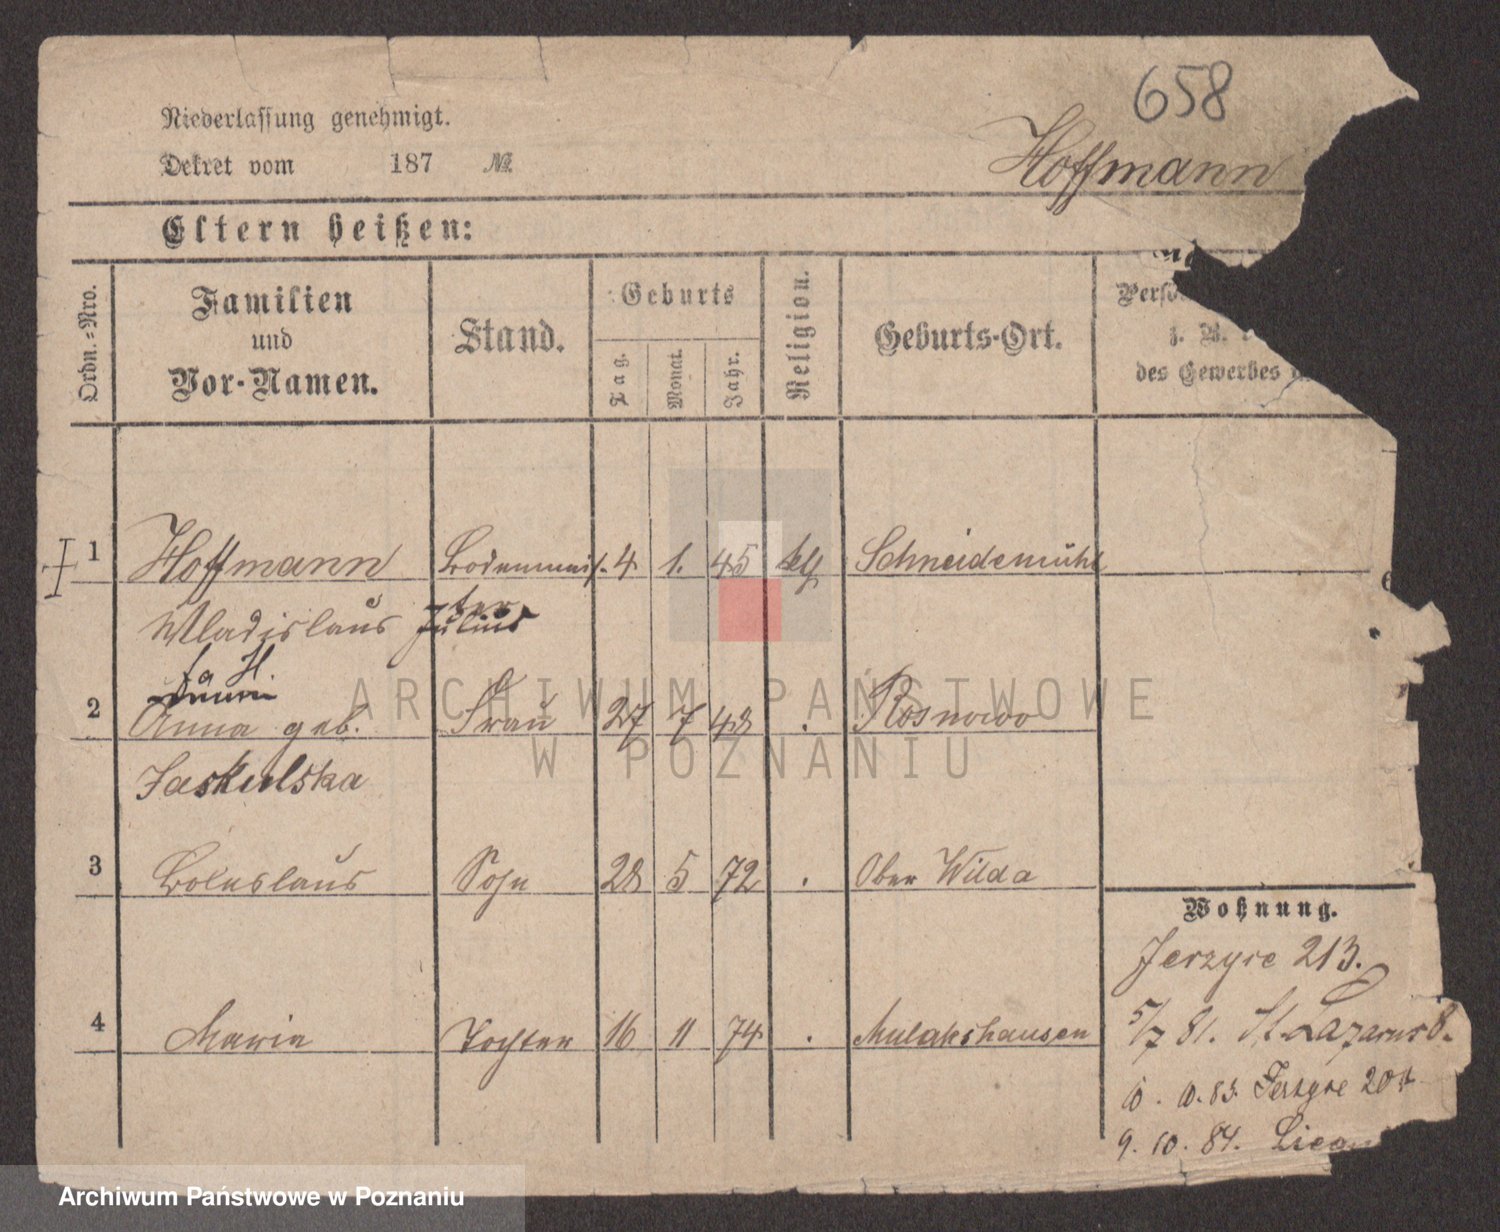 658
Niederlassung genehmigt.
Dekret vom 187 №
Hoffmann
Eltern heißen:
Ordn.-Nro.
Familien
und
Vor-Namen.
Stand.
Geburts
Tag.
Monat.
Jahr.
Religion.
Geburts-Ort.
z. B.
des Gewerbes
1 Hoffmann Bodenmeis- 4 1. 45 Schneidemühl
Wladislaus Julius ter
2 Anna geb. Frau 27 7 48 . Rosnowo
Jaskulska
3 Boleslaus Sohn 28 5 72 . Ober Wilda
4 Maria Tochter 16 11 74 . Mulakshausen
Wohnung.
Jerzyce 213.
5/7 81. St Lazarus 8.
10. 83. Jerzyce
9. 10. 84.
ARCHIWUM PAŃSTWOWE
W POZNANIU
Archiwum Państwowe w Poznaniu